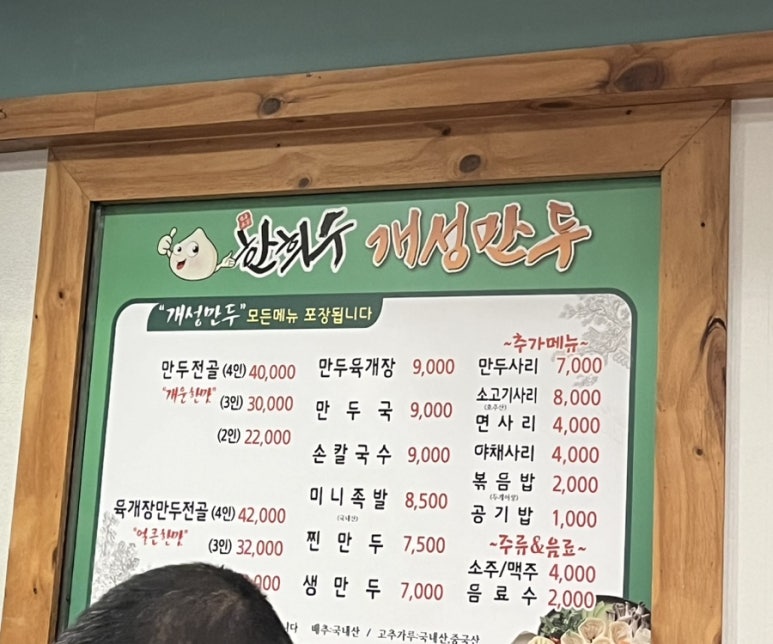 한희수 개성만두
"개성만두" 모든메뉴 포장됩니다
만두전골 (4인) 40,000
"개운한맛" (3인) 30,000
(2인) 22,000
육개장만두전골 (4인) 42,000
"얼큰한맛" (3인) 32,000
만두육개장 9,000
만두국 9,000
손칼국수 9,000
미니족발 8,500
(국내산)
찐만두 7,500
생만두 7,000
~추가메뉴~
만두사리 7,000
소고기사리 8,000
(호주산)
면사리 4,000
야채사리 4,000
볶음밥 2,000
공기밥 1,000
~주류&음료~
소주/맥주 4,000
음료수 2,000
배추:국내산 / 고추가루:국내산,중국산